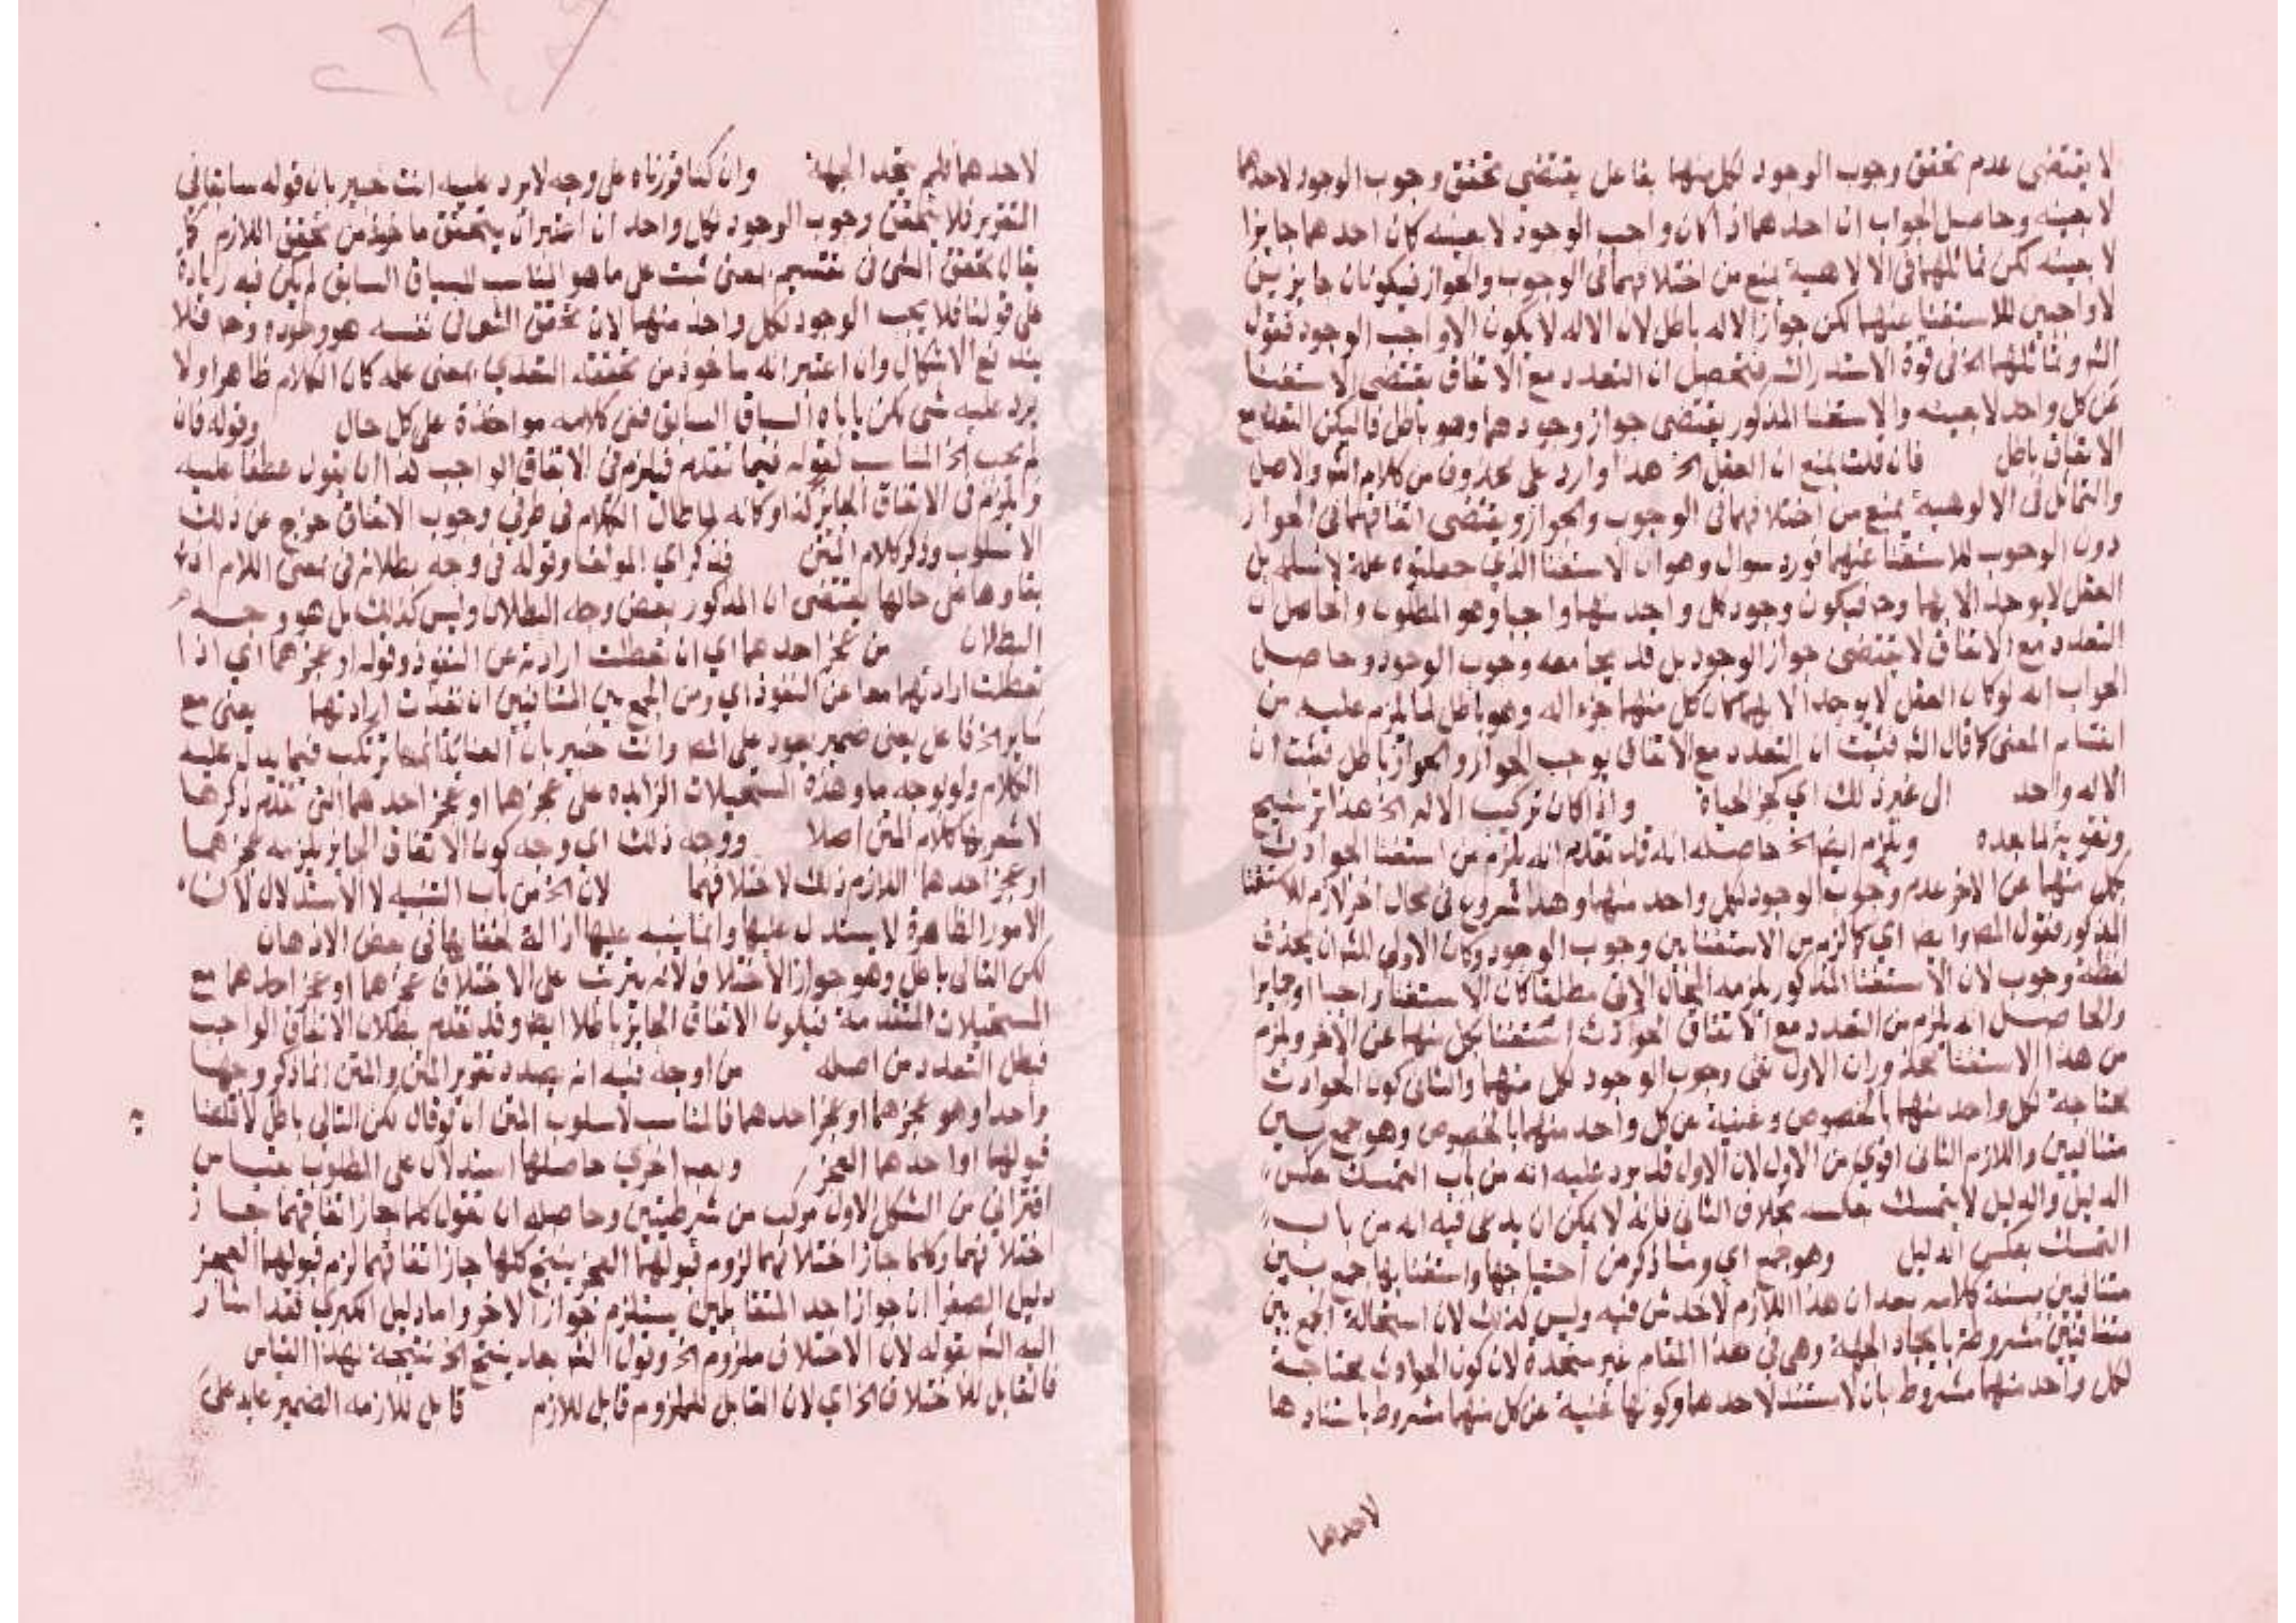 لا يقتضى عدم تحقق وجوب الوجود لكل منهما بفاعل يقتضي تحقق وجوب الوجود لاحدهما
لا بعينه وحاصل الجواب ان احدهما اذا كان واجب الوجود لا بعينه كان احدهما جايزا
لا بعينه لكن تماثلهما فى الالاهية يمنع من اختلافهما فى الوجوب والجواز فيكونان جايزين
لا واجبين للاستغنا عنهما لكن جواز الاله باطل لان الاله لا يكون الا واجب الوجود فقول
الش وتماثلهما الخ فى قوة الاستدراك فتحصل ان التعدد مع الاتفاق يقتضى الاستغنا
عن كل واحد لا بعينه والاستغنا المذكور يقتضى جواز وجودهما وهو باطل فاليكن التعدد مع
الاتفاق باطل فان قلت يمنع ان العقل الخ هذا وارد على محذوف من كلام الش والاصل
والتماثل فى الالوهية يمنع من اختلافهما فى الوجوب والجواز ويقتضى اتفاقهما فى الجواز
دون الوجوب للاستغنا عنهما فورد سوال وهو ان الاستغنا الذي جعلتوه علة لا نسلمه بل
العقل لا يوجد الا بهما وح فيكون وجود كل واحد منهما واجبا وهو المطلوب والحاصل ان
التعدد مع الاتفاق لا يقتضى جواز الوجود بل قد يجامعه وجوب الوجود وحاصل
الجواب انه لو كان العقل لا يوجد الا بهما لكان كل منهما جزء اله وهو باطل لما يلزم عليه من
انقسام المعنى كما قال الش فثبت ان التعدد مع الاتفاق يوجب الجواز والجواز باطل فثبت ان
الاله واحد الى غير ذلك اي كالحياة واذا كان تركيب الاله الخ هذا ترشيح
وتقوية لما بعده ويلزم ايضا الخ حاصله انه قد تقدم انه يلزم من استغنا الحوادث
بكل منهما عن الاخر عدم وجوب الوجود لكل واحد منهما وهذا شروع فى محال اخر لازم للاستغنا
المذكور فقول المص وايضا اي كما لزم من الاستغنايين وجوب الوجود وكان الاولى للش ان يحذف
لفظة وجوب لان الاستغنا المذكور يلزمه المحال الاتى مطلقا كان الاستغنا واجبا او جايزا
والحاصل انه يلزم من التعدد مع الاتفاق الحوادث استغنا بكل منهما عن الاخر ويلزم
من هذا الاستغنا محذوران الاول نفى وجوب الوجود لكل منهما والثانى كون الحوادث
محتاجة لكل واحد منهما بالخصوص وغنية عن كل واحد منهما بالخصوص وهو جمع بين
متنافيين واللازم الثانى اقوى من الاول لان الاول قد يرد عليه انه من باب التمسك بعكس
الدليل والدليل لا يتمسك بعكسه بخلاف الثانى فانه لا يمكن ان يدعى فيه انه من باب
التمسك بعكس الدليل وهو جمع اي وما ذكر من احتياجها واستغنايها جمع بين
متنافيين بسنة كلامه بعد ان هذا اللازم لا خدش فيه وليس كذلك لان استحالة الجمع بين
متنافيين مشروطة باتحاد الجهة وهى فى هذا المقام غير متحدة لان كون الحوادث محتاجة
لكل واحد منهما مشروط بان لا تستند لاحدهما وكونها غنية عن كل منهما مشروط باستنادها
لاحدهما
لاحدهما فلم يتحد الجهة وان كنا قررناه على وجه لا يرد عليه انت خبير بان قوله سابقا فى
التقرير فلا يتحقق وجوب الوجود لكل واحد ان اعتبر ان يتحقق ماخوذ من تحقق اللازم كما
يقال تحقق الشى فى نفسه بمعنى ثبت على ما هو المناسب للسياق السابق لم يكن فيه زيادة
على قولنا فلا يجب الوجود لكل واحد منهما لان تحقق الشى فى نفسه هو وجوده وح فلا
يندفع الاشكال وان اعتبر انه ماخوذ من تحققته التعدي بمعنى علمه كان الكلام ظاهرا ولا
يرد عليه شى لكن ياباه السياق السابق ففى كلامه مواخذة على كل حال وقوله فان
لم يجب الخ المناسب لقوله فيما تقدم فيلزم فى الاتفاق الواجب كذا ان يقول عطفا عليه
ويلزم فى الاتفاق الجايز كذا وكانه لما طال الكلام فى طرفي وجوب الاتفاق خرج عن ذلك
الاسلوب وذكر كلام المتن فذكر اي المولف وقوله فى وجه بطلانه فى بمعنى اللام اذ
بقاوها على حالها يقتضى ان المذكور بعض وجه البطلان وليس كذلك بل هو وجه
البطلان من عجز احدهما اي ان تعطلت ارادته عن النفوذ وقوله او عجزهما اي اذا
تعطلت ارادتهما معا عن النفوذ اي ومن الجمع بين المتنافيين ان نفذت ارادتهما يعنى مع
ساير الخ فاعل يعنى ضمير يعود على المص وانت خبير بان العناية انما ترتكب فيما يدل عليه
الكلام ولو بوجه ما وهذه المستحيلات الزايده على عجزهما او عجز احدهما التى تقدم ذكرها
لا شعر بها كلام المتن اصلا ووجه ذلك اي وجه كون الاتفاق الجايز يلزمه عجزهما
او عجز احدهما اللازم ذلك لاختلافهما لان الخ من باب التنبيه لا الاستدلال لان
الامور الظاهرة لا يستدل عليها وانما ينبه عليها ازالة لخفايها فى بعض الاذهان
لكن التالى باطل وهو جواز الاختلاف لانه يترتب على الاختلاف عجزهما او عجز احدهما مع
المستحيلات المتقدمة فيكون الاتفاق الجايز باطلا ايضا وقد تقدم بطلان الاتفاق الواجب
فبطل التعدد من اصله من اوجه فيه انه بصدد تقرير المتن والمتن انما ذكر وجها
واحدا وهو عجزهما او عجز احدهما فالمناسب لاسلوب المتن ان لو قال لكن التالى باطل لاقتضا
قبولهما او احدهما العجز وبعبارة اخرى حاصلها استدلال على المطلوب بقياس
اقتراني من الشكل الاول مركب من شرطيتين وحاصله ان تقول كلما جاز اتفاقهما جاز
اختلافهما وكلما جاز اختلافهما لزوم قبولهما العجز ينتج كلما جاز اتفاقهما لزم قبولهما العجز
دليل الصغرا ان جواز احد المتقابلين يستلزم جواز الاخر واما دليل الكبرى فقد اشار
اليه الش بقوله لان الاختلاف ملزوم الخ وقول الش بعد ينتج الخ نتيجة لهذا القياس
فالقابل للاختلاف الخ اي لان القابل للملزوم قابل للازم قابل للازمه الضمير عايد على